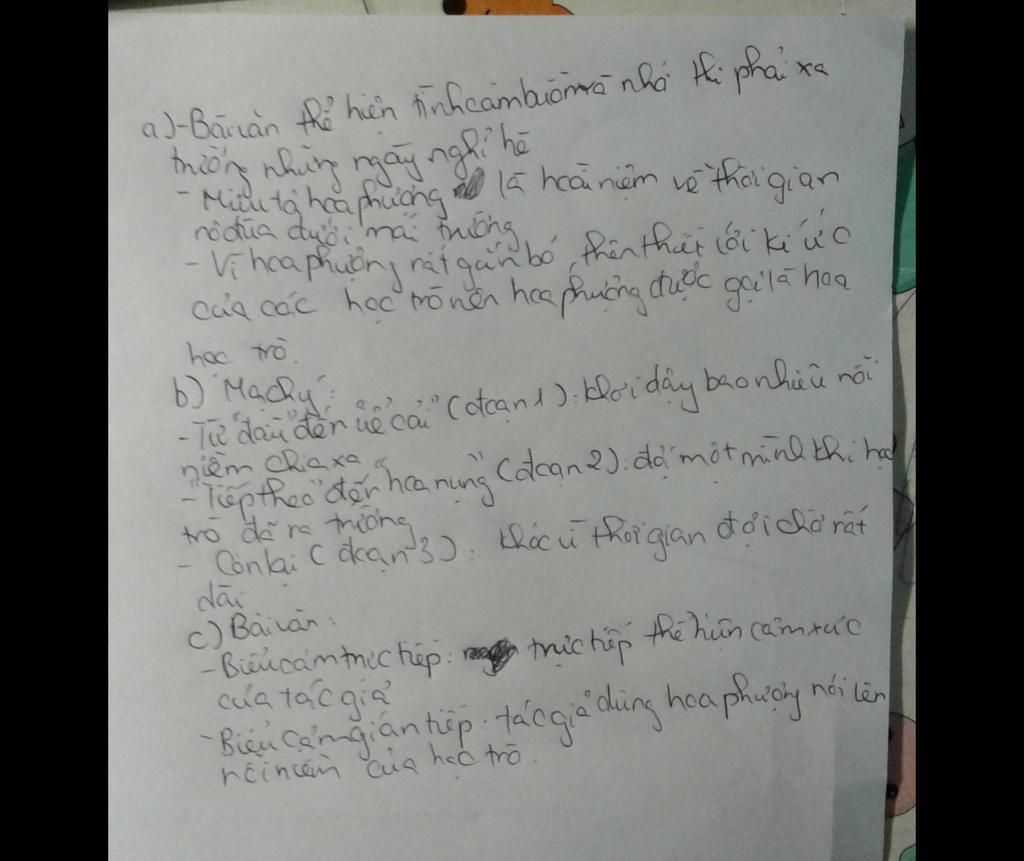 a)-Bài văn thể hiện tình cảm buồn và nhớ khi phải xa
trường những ngày nghỉ hè
- Miêu tả hoa phượng là hoài niệm về thời gian
nô đùa dưới mái trường
- Vì hoa phượng rất gắn bó, thân thiết với kí ức
của các học trò nên hoa phượng được gọi là hoa
học trò.
b) Mạch ý:
- Từ "đầu" đến (đoạn 1): khơi dậy bao nhiêu nỗi
niềm chia xa
- Tiếp theo "đến hoa rụng" (đoạn 2): đợi một mình khi học
trò đã ra trường
- Còn lại (đoạn 3): khóc vì thời gian đợi chờ rất
dài
c) Bài văn:
- Biểu cảm trực tiếp: trực tiếp thể hiện cảm xúc
của tác giả
- Biểu cảm gián tiếp. tác giả dùng hoa phượng nói lên
nỗi niềm của học trò.